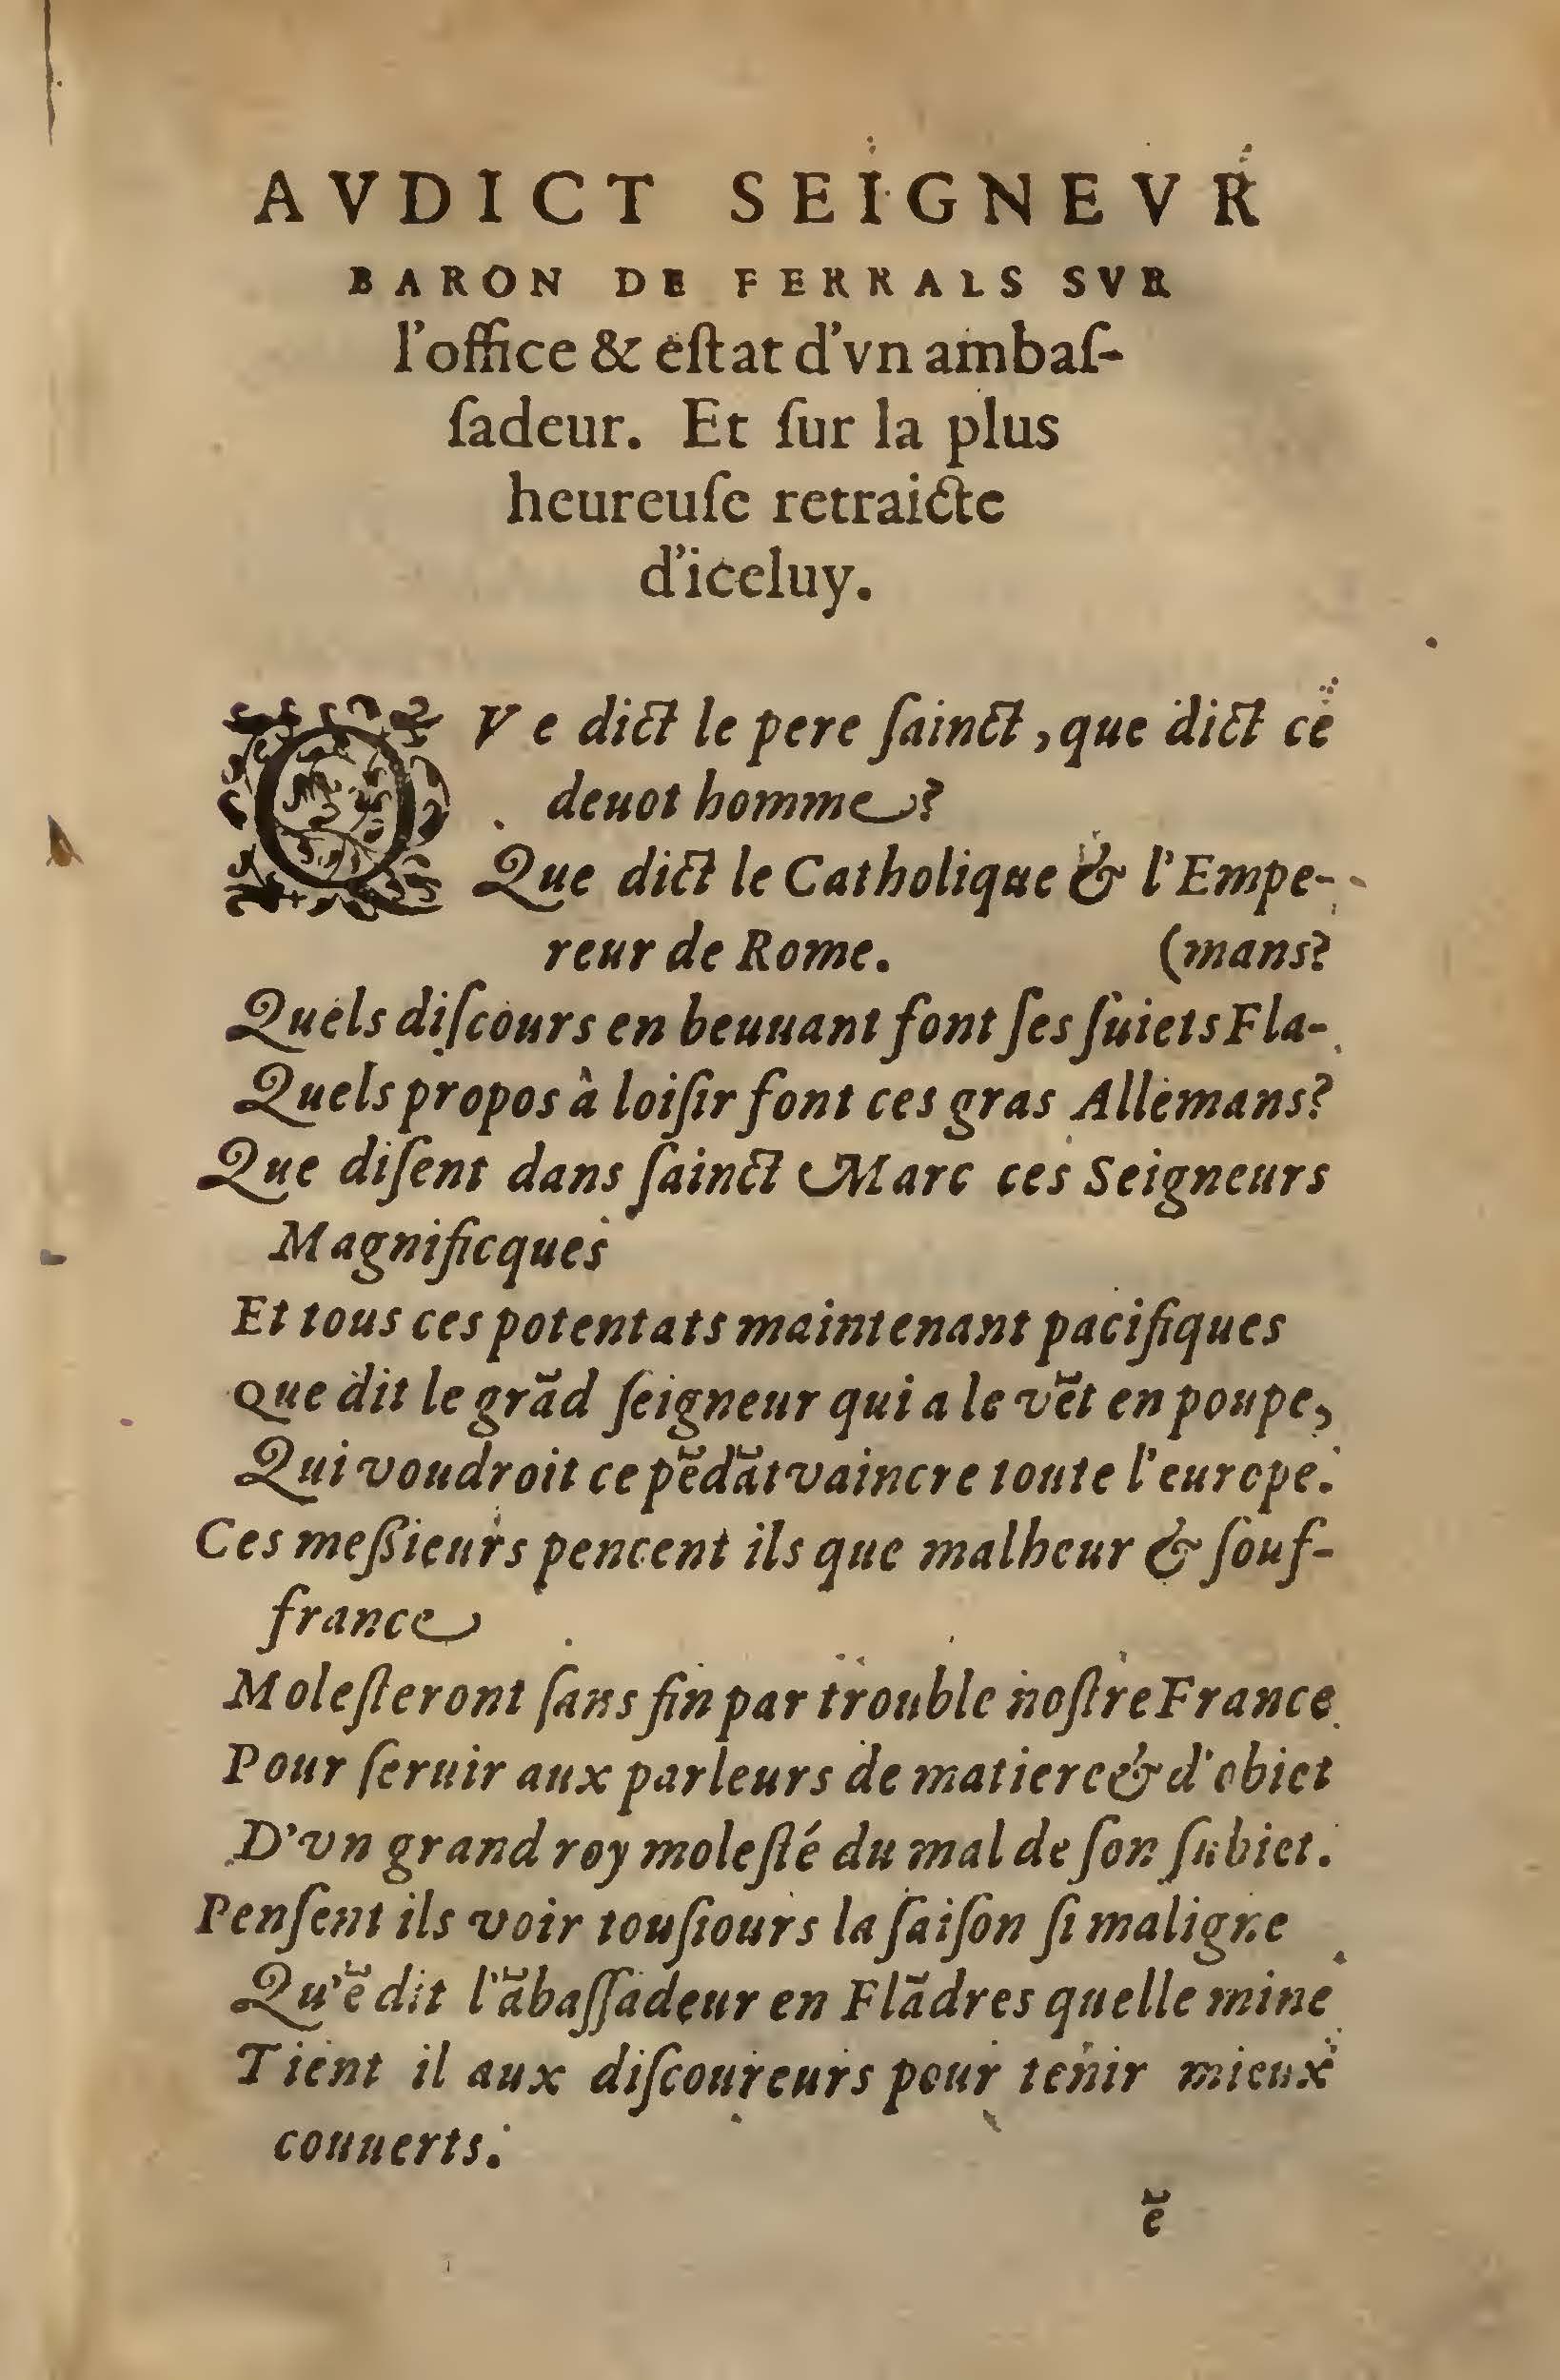 AVDICT SEIGNEVR
BARON DE FERRALS SVR
l'office & eſtat d'vn ambaſ-
ſadeur. Et ſur la plus
heureuſe retraicte
d'iceluy.
QVe dict le pere ſainct, que dict ce
deuot homme?
Que dict le Catholique & l'Empe-
reur de Rome. (mans?
Quels diſcours en beuuant font ſes ſuiets Fla-
Quels propos à loiſir font ces gras Allemans?
Que diſent dans ſainct Marc ces Seigneurs
Magnificques
Et tous ces potentats maintenant pacifiques
Que dit le grãd ſeigneur qui a le vẽt en poupe,
Qui voudroit ce pẽdãt vaincre toute l'europe.
Ces meßieurs pencent ils que malheur & ſouf-
france
Moleſteront ſans fin par trouble noſtre France
Pour ſeruir aux parleurs de matiere & d'obiet
D'vn grand roy moleſté du mal de ſon ſubiet.
Penſent ils voir touſiours la ſaiſon ſi maligne
Qu'ẽ dit l'ãbaſſadeur en Flãdres quelle mine
Tient il aux diſcoureurs pour tenir mieux
couuerts.
ẽ